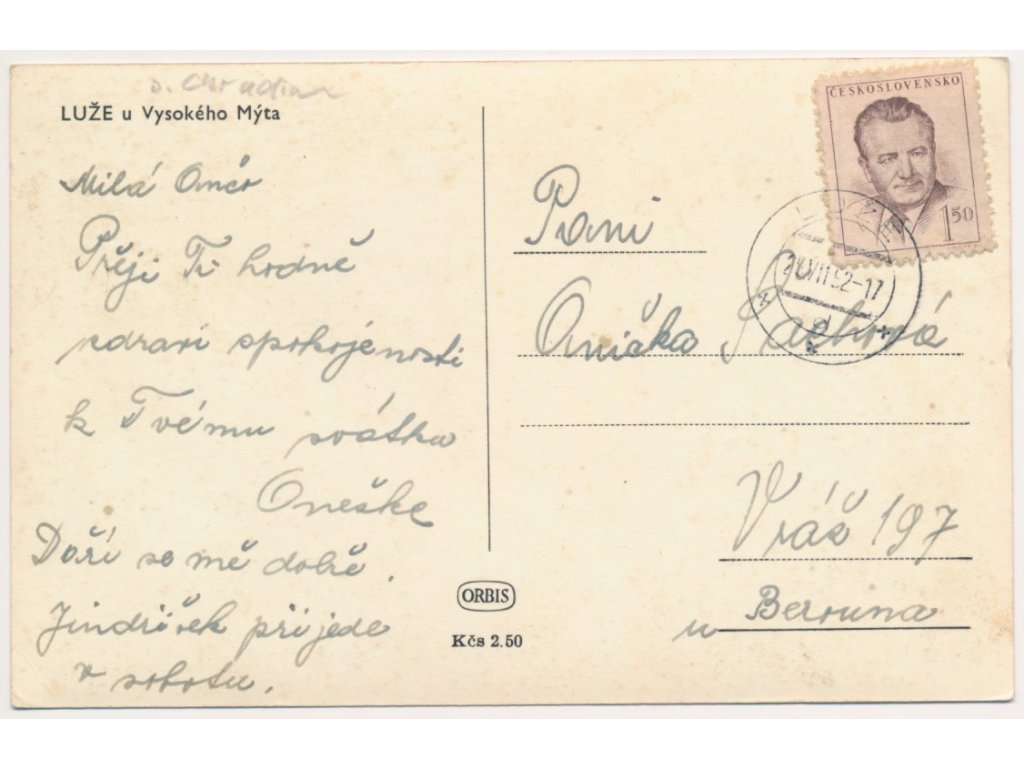 o. Chrudim
LUŽE u Vysokého Mýta
Milá
Přeji Ti hodně
zdraví spokojenosti
k Tvému svátku
Doří se mě dobře.
Jindříšek přijede
v sobotu.
ORBIS
Kčs 2.50
ČESKOSLOVENSKO
1 50
Paní
Anička
Vráž 197
u Berouna